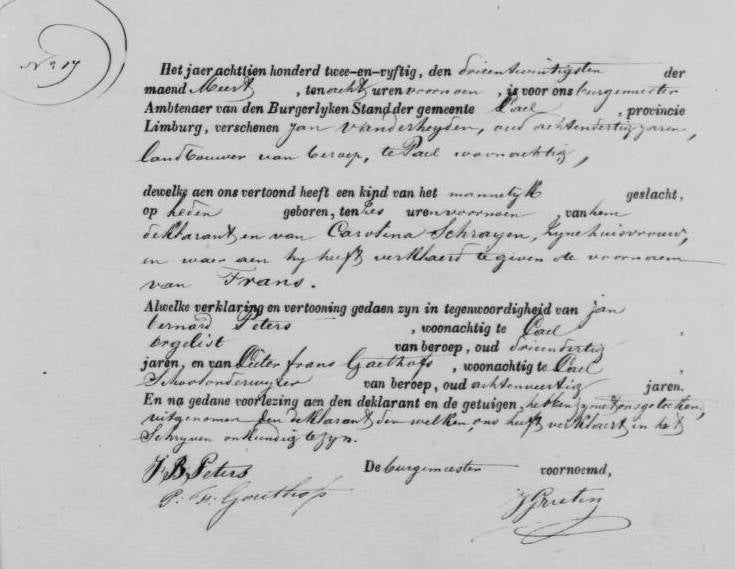 N° 17
Het jaer achttien honderd twee-en-vyftig, den drieentwintigsten der
maend Meert, ten acht uren voornoen, is voor ons burgemeester
Ambtenaer van den Burgerlyken Stand der gemeente Pael, provincie
Limburg, verschenen Jan Vanderheyden, oud achtendertig jaren,
landbouwer van beroep, te Pael woonachtig,
dewelke aen ons vertoond heeft een kind van het mannelijk geslacht,
op heden geboren, ten zes uren voornoen, van hem
deklarant en van Carolina Schrayen, zyne huisvrouw,
en waer aen hy heeft verklaerd te geven de voornaem
van Frans.
Alwelke verklaring en vertooning gedaen zyn in tegenwoordigheid van jan
bernard Peters, woonachtig te Pael,
orgelist van beroep, oud drieendertig
jaren, en van Pieter frans Goethofs, woonachtig te Pael,
Schoolonderwyzer van beroep, oud achtenveertig jaren.
En na gedane voorlezing aen den deklarant en de getuigen, hebben zy met ons geteekend,
uitgenomen den deklarant den welken ons heeft verklaert in het
Schryven onkundig te zyn.
J. B. Peters De burgemeester voornoemd,
P. F. Goethofs